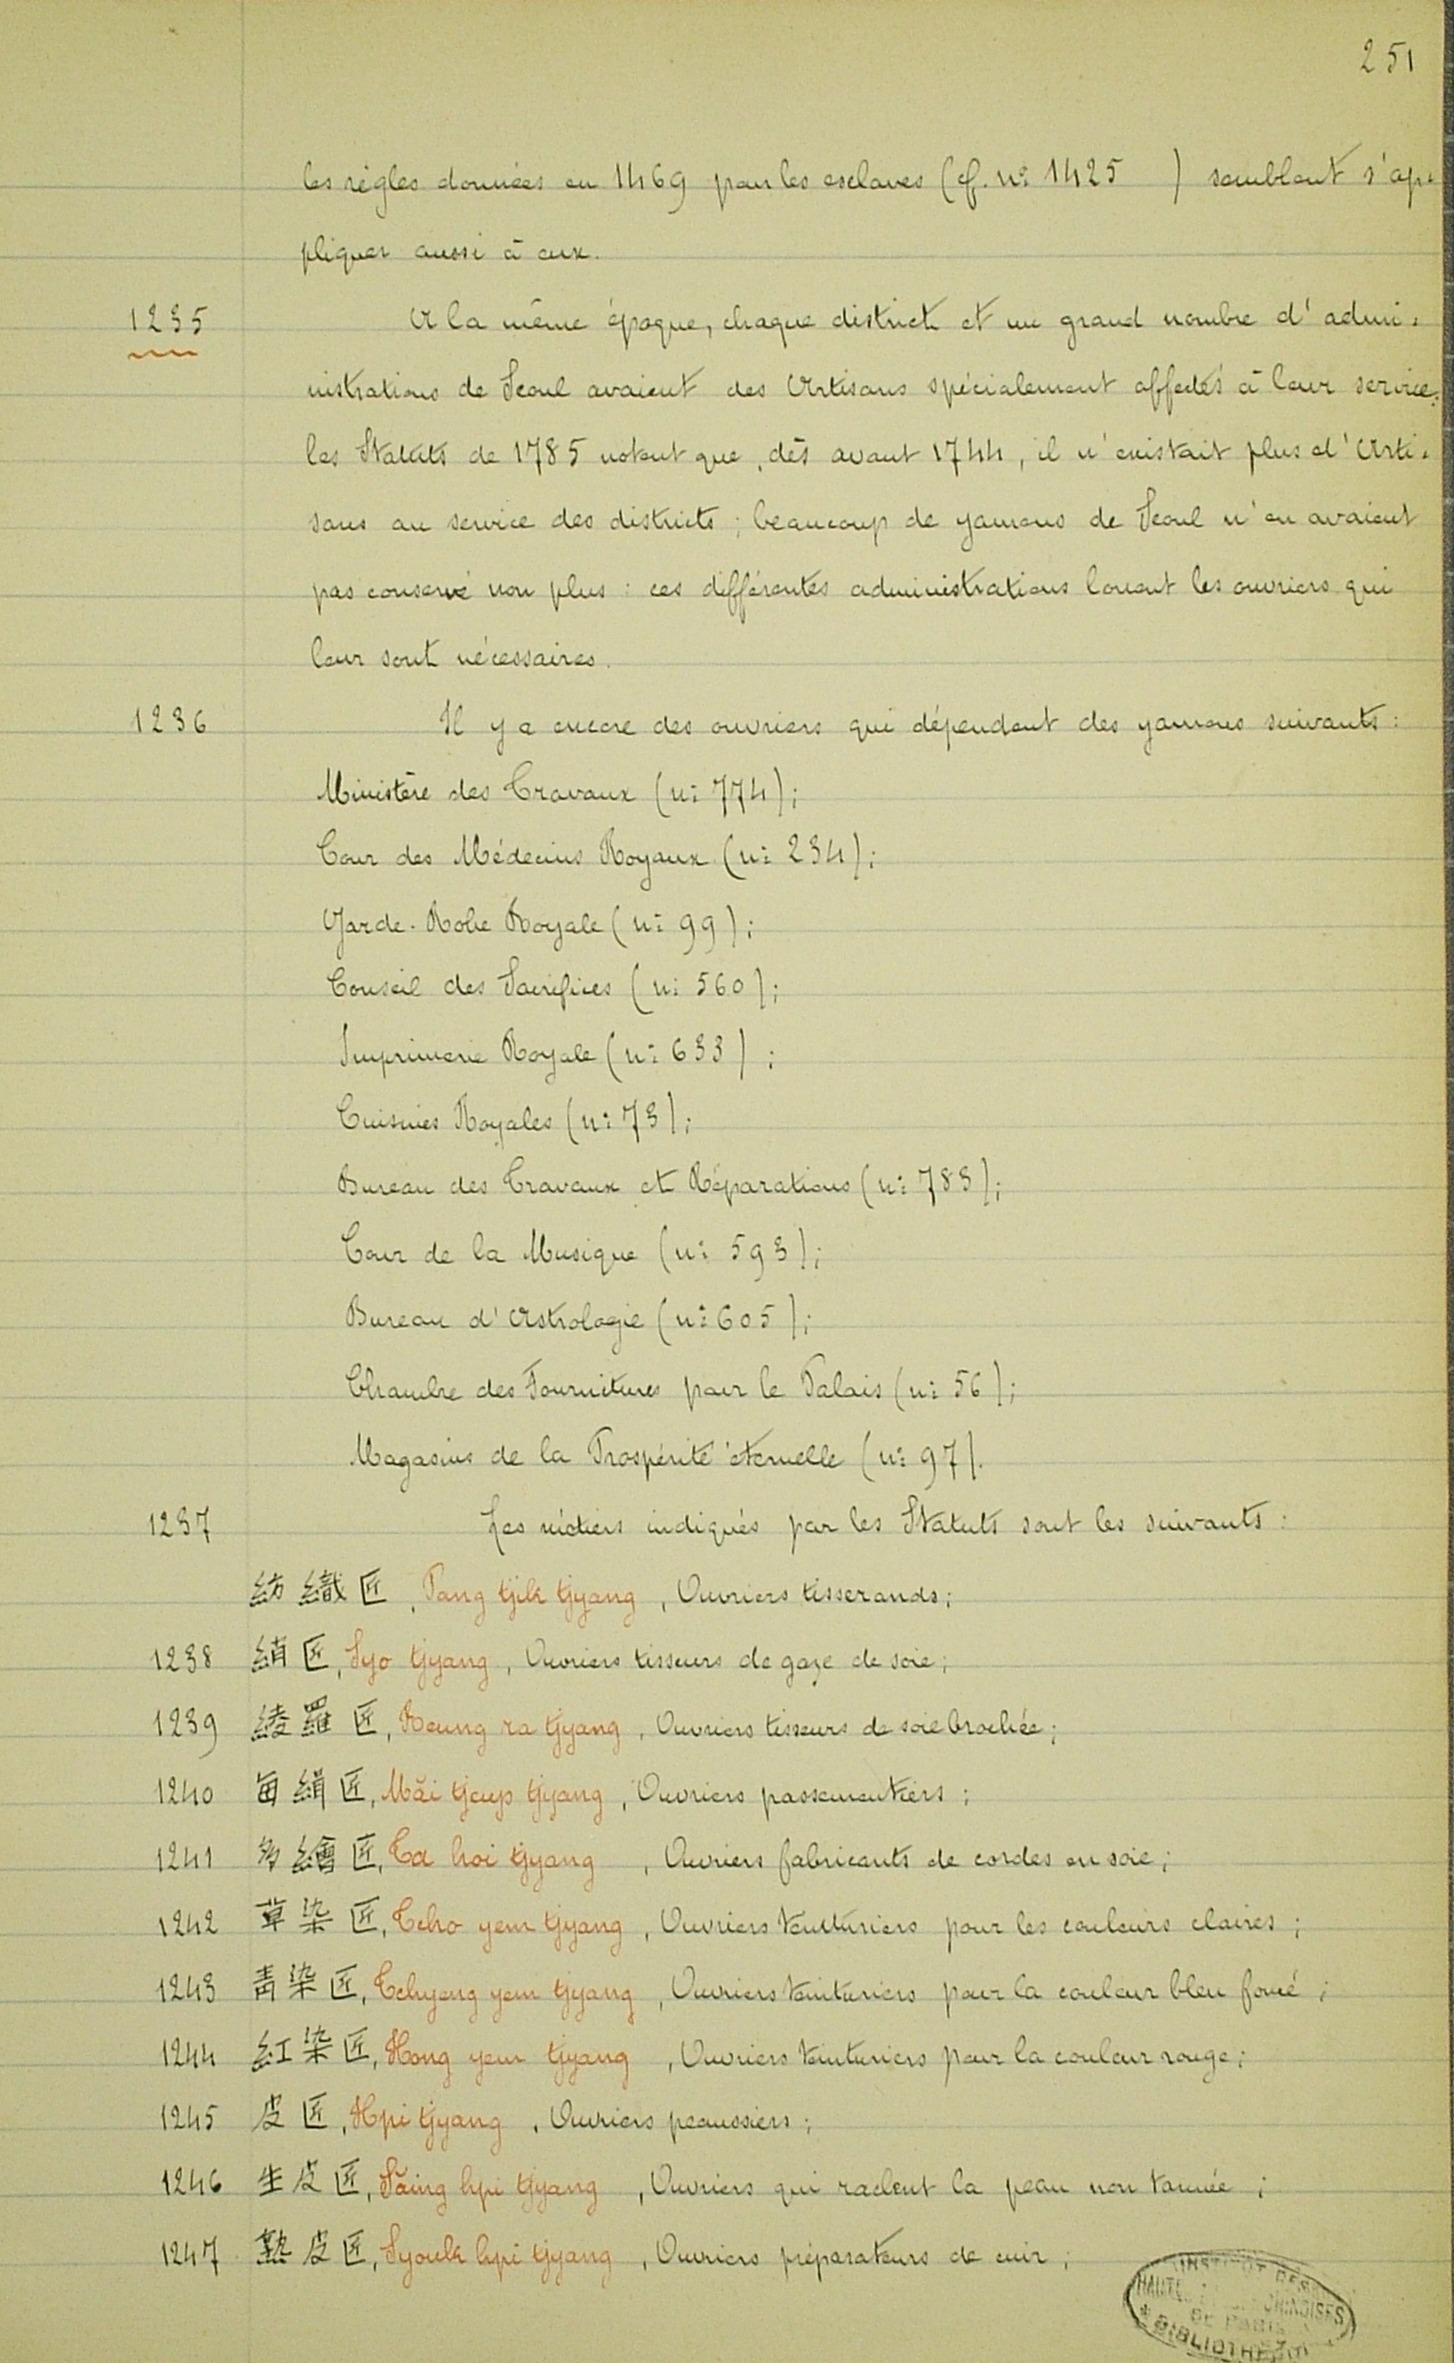 251
les règles données en 1469 pour les esclaves (cf. nº 1425 ) semblent s'ap-
pliquer aussi à eux.
1235 A la même époque, chaque district et un grand nombre d'admi-
nistrations de Seoul avaient des Artisans spécialement affectés à leur service;
les Statuts de 1785 notent que, dès avant 1744, il n'existait plus d'Arti-
sans au service des districts; beaucoup de yamens de Seoul n'en avaient
pas conservé non plus : ces différentes administrations louent les ouvriers qui
leur sont nécessaires.
1236 Il y a encore des ouvriers qui dépendent des yamens suivants :
Ministère des Travaux (nº 774);
Cour des Médecins Royaux (nº 234);
Garde-Robe Royale (nº 99);
Conseil des Sacrifices (nº 560);
Imprimerie Royale (nº 633) ;
Cuisines Royales (nº 73);
Bureau des Travaux et Réparations (nº 783);
Cour de la Musique (nº 593);
Bureau d'Astrologie (nº 605);
Chambre des Fournitures pour le Palais (nº 56);
Magasins de la Prospérité éternelle (nº 97).
1237 Les métiers indiqués par les Statuts sont les suivants :
紡織匠, Pang tjik tjyang, Ouvriers tisserands;
1238 綃匠, Syo tjyang, Ouvriers tisseurs de gaze de soie;
1239 綾羅匠, Reung ra tjyang, Ouvriers tisseurs de soie brochée;
1240 每緝匠, Măi tjeup tjyang, Ouvriers passementiers ;
1241 多繪匠, Ta hoi tjyang, Ouvriers fabricants de cordes en soie;
1242 草染匠, Tcho yem tjyang, Ouvriers teinturiers pour les couleurs claires ;
1243 青染匠, Tchyeng yem tjyang, Ouvriers teinturiers pour la couleur bleu foncé ;
1244 紅染匠, Hong yem tjyang, Ouvriers teinturiers pour la couleur rouge;
1245 皮匠, Hpi tjyang, Ouvriers peaussiers;
1246 生皮匠, Săing hpi tjyang, Ouvriers qui raclent la peau non tannée ;
1247 熟皮匠, Syouk hpi tjyang, Ouvriers préparateurs de cuir ;
INSTITUT DES
HAUTES CHINOISES
DE PARIS
* BIBLIOTHE